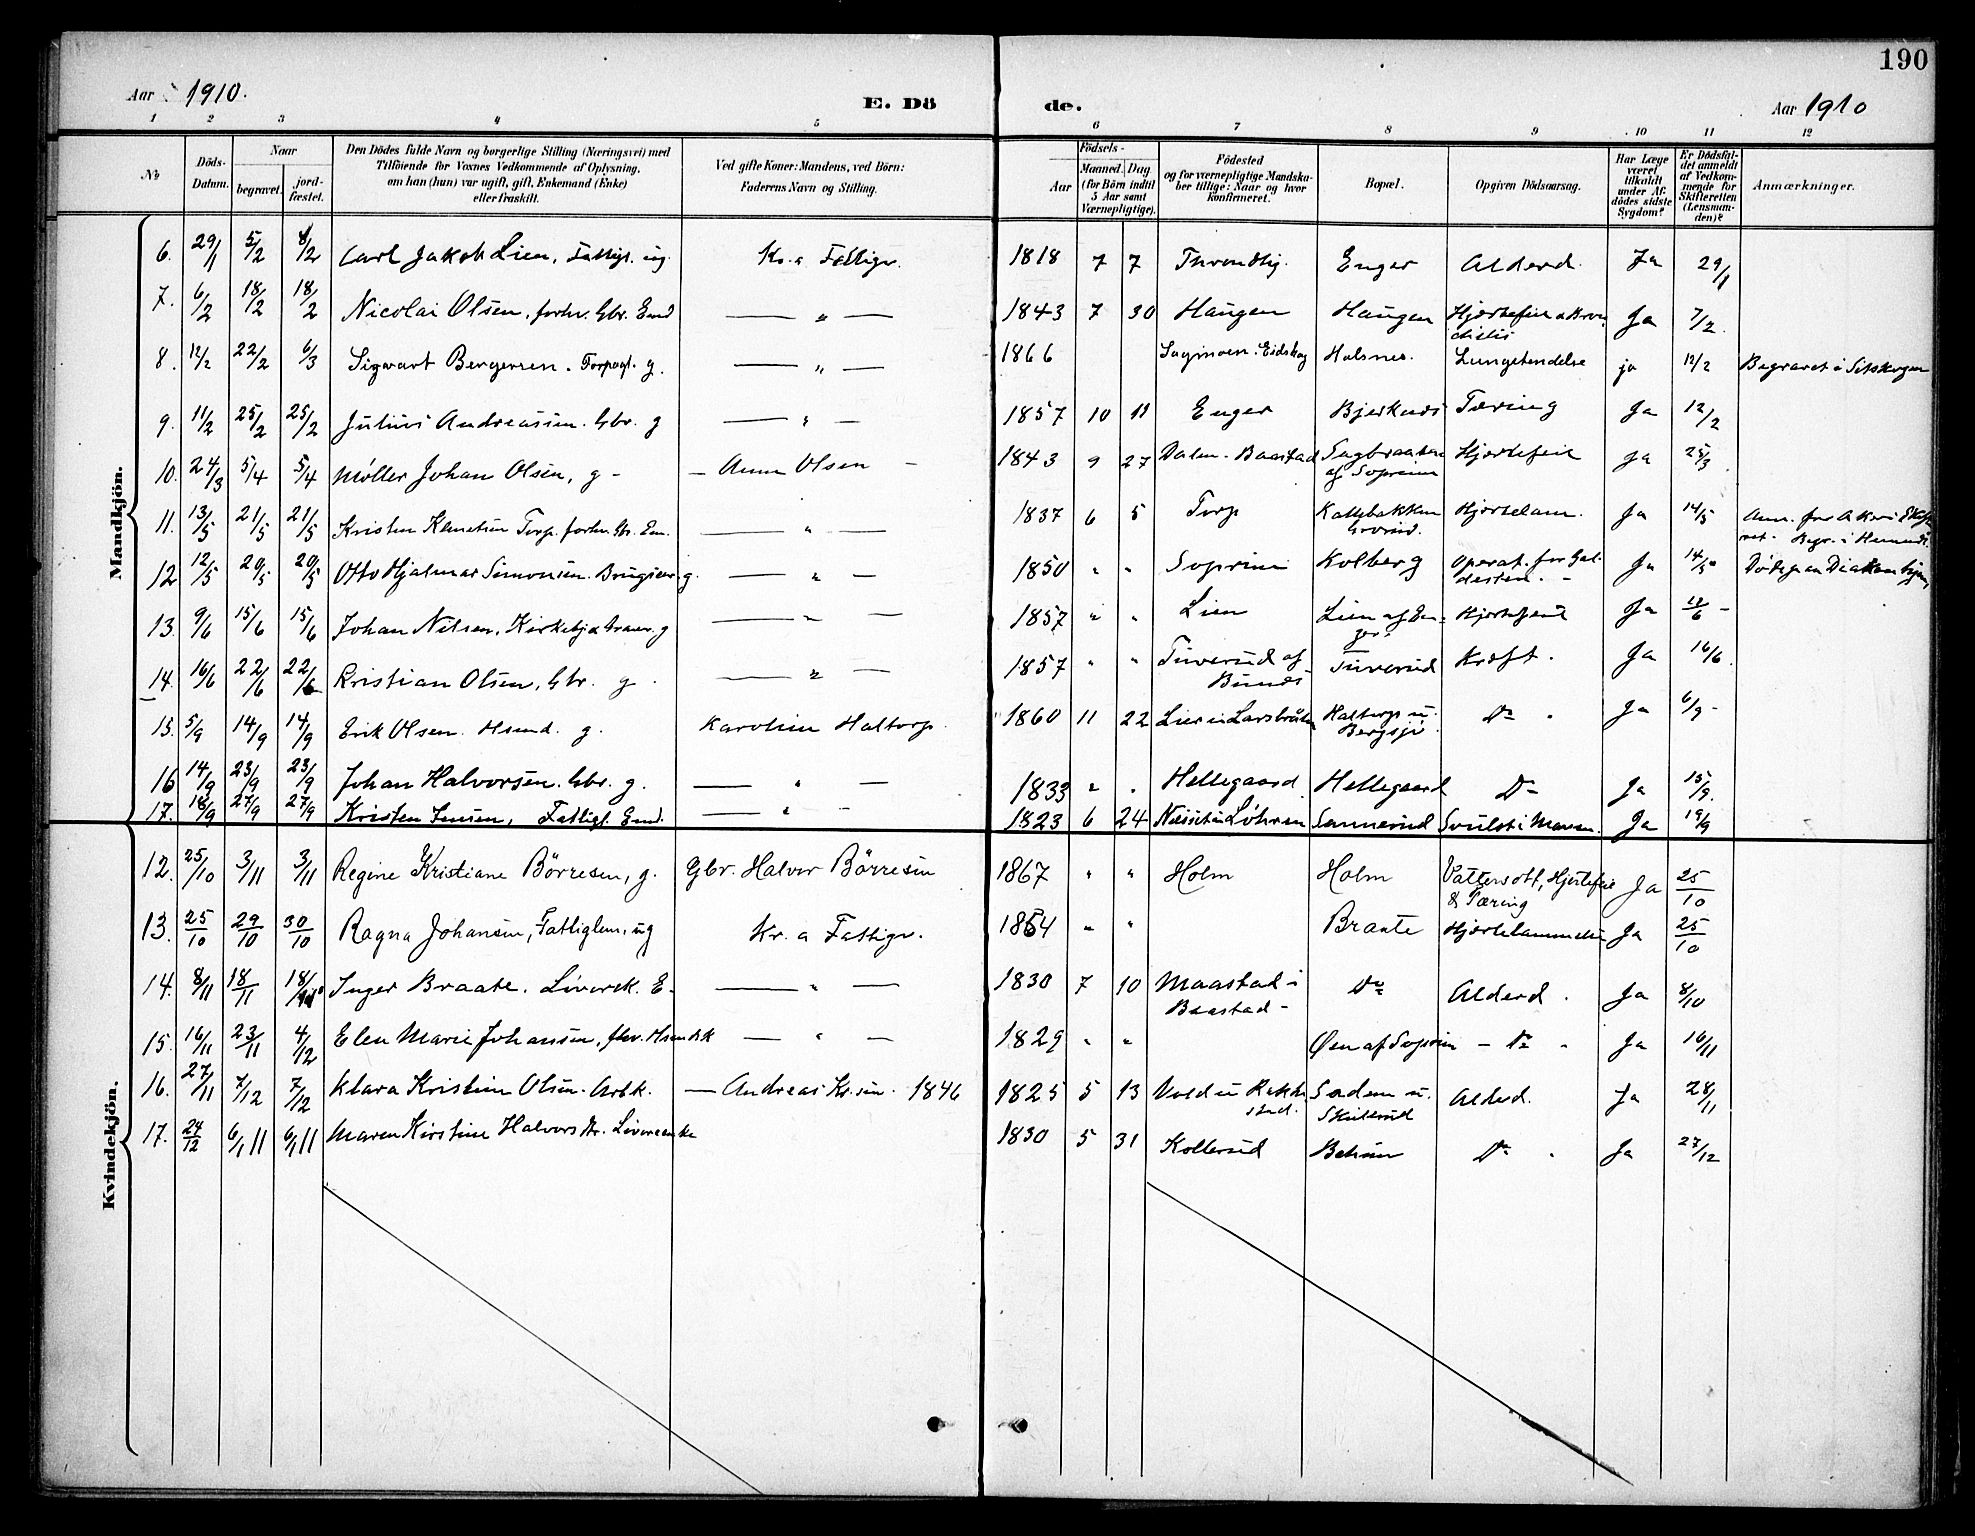 190
Aar 1910.
E. Döde.
Aar 1910
1 2 3 4 5 6 7 8 9 10 11 12
No
Döds-Datum.
Naar
begravet.
jordfæstet.
Den Dödes fulde Navn og borgerlige Stilling (Næringsvei) med
Tilföiende for Voxnes Vedkommende af Oplysning,
om han (hun) var ugift, gift, Enkemand (Enke)
eller fraskilt.
Ved gifte Koner: Mandens, ved Börn:
Faderens Navn og Stilling.
Födsels-
Aar
Maaned. Dag
(for Börn indtil
5 Aar samt
Værnepligtige).
Födested
og for værnepligtige Mandskaber tillige: Naar og hvor
Konfirmeret.
Bopæl.
Opgiven Dödsaarsag.
Har Læge
været
tilkaldt
under Afdödes sidste
Sygdom?
Er Dödsfaldet anmeldt
af Vedkommende for
Skifteretten
(Lensmanden)?
Anmærkninger.
Mandkjön.
6. 29/1 5/2 8/2 Carl Jakob Lien, Fattigl. ug. Kr.a Fattigv. 1818 7 7 Throndhj. Enger Alderd. Ja 29/1
7. 6/2 18/2 18/2 Nicolai Olsen, forhv. Gbr. Emd — „ — 1843 7 30 Haugen Haugen Hjertefeil & Bronchitis Ja 7/2
8. 12/2 22/2 6/3 Sigvart Bergersen. Forpagt. g. — „ — 1866 Sagmoen. Eidskog Halsnes. Lungebetendelse ja 12/2 Begravet i Setskogen
9. 11/2 25/2 25/2 Julius Andreassen. Gbr. g — „ — 1857 10 11 Enger Bjerknes Tæring Ja 12/2
10. 24/3 5/4 5/4 Møller Johan Olsen, g - — Anna Olsen — 1843 9 27 Dalen - Baastad Sagbraaten af Soprim Hjertefeil ja 25/3
11. 13/5 21/5 21/5 Kristen Klemetsen Torp. forhv. Gbr. Em. — „ — 1837 6 5 Torp Kattebakken Hjertelam. Ja 14/5 Anm. for Aker
12 12/5 20/5 20/5 Otto Hjalmar Simonsen. Brugseier g. — „ — 1850 " " Soprim Kolberg Operat. for Galdesten. - Ja 14/5
13. 9/6 15/6 15/6 Johan Nilsen, Kirketj & Graver. g — „ — 1857 " " Lien Lien af Enger Hjertefeil Ja 12/6 -
14. 16/6 22/6 22/6 Kristian Olsen, Gbr. g. — „ — 1857 " " Tuverud af Bunes Tuverud Kræft. Ja 16/6.
15. 5/9 14/9 14/9 Erik Olsen. Hsmd. g. Karoline Haltorp. 1860 11 22 Haltorp u. Bergsjø Do. Ja 6/9 -
16 14/9 23/9 23/9 Johan Halvorsen. Gbr. g. — „ — 1833 " . Hellegaard Hellegaard Do Ja 15/9.
17. 18/9 27/9 27/9 Kristen Jensen, Fattigl. Emd. — „ - 1823 6 24 Sannerud Svulst i Maven. Ja 19/9
Kvindekjön.
12. 25/10 3/11 3/11 Regine Kristiane Börresen, g. Gbr. Halvor Börresen 1867 " " Holm Holm Vattersott, Hjertefeil & Tæring Ja 25/10
13. 25/10 29/10 30/10 Ragna Johansen, Fattiglem, ug Kr. a Fattigv. 1854 " " Braate Hjertelammelse Ja 25/10
14. 8/11 18/11 18/11 Inger Braate. Livørek. E. — „ — 1830 7 10 Maastad i Baastad - Do Alderd. Ja 8/10
15. 16/11 23/11 4/12 Elen Marie Johansen, fhv. Hsmdsk — „ — 1829 " " Øen af Soprim - Do " Ja 16/11
16. 27/11 7/12 7/12 Klara Kristine Olsen. Arbk. — Andreas Kr.sen. 1846 1825 5 13 Soden u. Skiterud Alderd. Ja 28/11
17. 24/12 6/1 11 6/1 11 Maren Kirstine Halvorsdtr. Livøreenke 1830 5 31 Kollerud Do. Ja 27/12